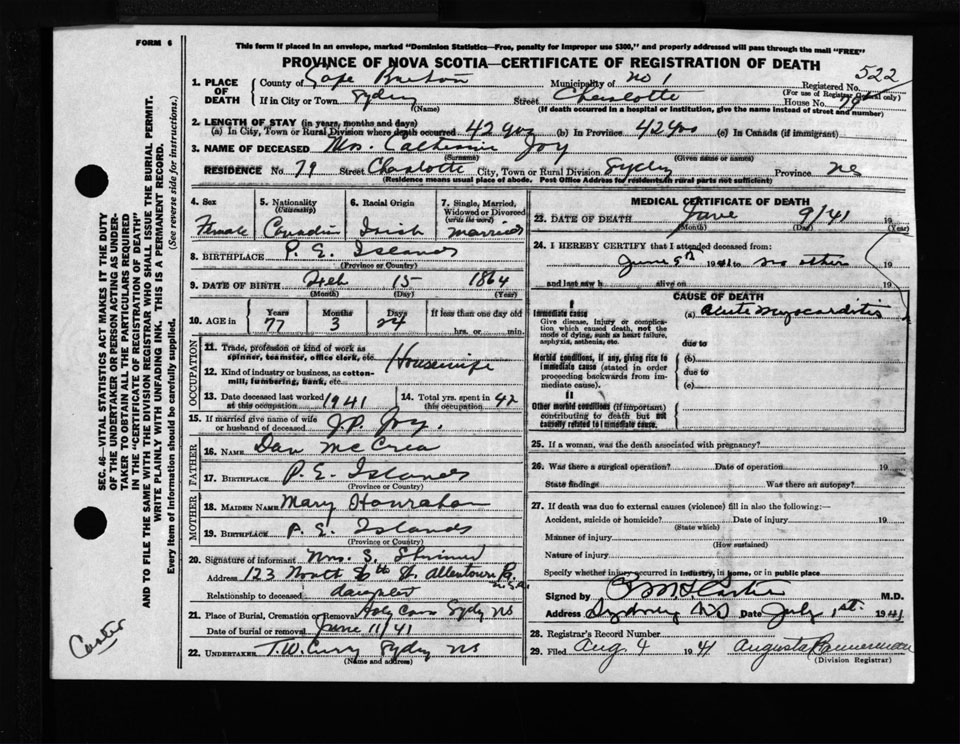 FORM 6
This form if placed in an envelope, marked "Dominion Statistics—Free, penalty for improper use $300," and properly addressed will pass through the mail "FREE"
PROVINCE OF NOVA SCOTIA—CERTIFICATE OF REGISTRATION OF DEATH
522
1. PLACE OF DEATH
County of Cape Breton Municipality of No 1 Registered No.
(For use of Registrar General only)
If in City or Town Sydney Street Charlotte House No. 79
(Name) (If death occurred in a hospital or institution, give the name instead of street and number)
2. LENGTH OF STAY (in years, months and days)
(a) In City, Town or Rural Division where death occurred 42 yrs (b) In Province 42 yrs (c) In Canada (if immigrant)
3. NAME OF DECEASED Mrs. Catherine Joy
(Surname) (Given name or names)
RESIDENCE No. 79 Street Charlotte City, Town or Rural Division Sydney Province NS
(Residence means usual place of abode. Post Office Address for residents in rural parts not sufficient)
4. Sex Female
5. Nationality (Citizenship) Canadian
6. Racial Origin Irish
7. Single, Married, Widowed or Divorced (write the word) Married
8. BIRTHPLACE P. E. Island
(Province or Country)
9. DATE OF BIRTH Feb 15 1864
(Month) (Day) (Year)
10. AGE in Years 77 Months 3 Days 24 If less than one day old hrs. or min.
OCCUPATION
11. Trade, profession or kind of work as spinner, teamster, office clerk, etc. Housewife
12. Kind of industry or business, as cotton-mill, lumbering, bank, etc.
13. Date deceased last worked at this occupation 1941
14. Total yrs. spent in this occupation 42
15. If married give name of wife or husband of deceased J. P. Joy.
FATHER
16. NAME Dan McCrea
17. BIRTHPLACE P. E. Island
(Province or Country)
MOTHER
18. MAIDEN NAME Mary Hanrahan
19. BIRTHPLACE P. E. Island
(Province or Country)
20. Signature of informant Mrs. S.
Address 123 North St Allentown Pa. U.S.A.
Relationship to deceased daughter
21. Place of Burial, Cremation or Removal Holy Cross Sydney NS
Date of burial or removal June 11/41
22. UNDERTAKER T. W. Curry Sydney NS
(Name and address)
MEDICAL CERTIFICATE OF DEATH
23. DATE OF DEATH June 9/41 19
(Month) (Day) (Year)
24. I HEREBY CERTIFY that I attended deceased from:
June 9th 1941 to no other 19
and last saw h alive on 19
CAUSE OF DEATH
I
Immediate cause
Give disease, injury or complication which caused death, not the mode of dying, such as heart failure, asphyxia, asthenia, etc.
(a) Acute Myocarditis
due to
Morbid conditions, if any, giving rise to immediate cause (stated in order proceeding backwards from immediate cause).
(b)
due to
(c)
II
Other morbid conditions (if important) contributing to death but not causally related to immediate cause.
25. If a woman, was the death associated with pregnancy?
26. Was there a surgical operation? Date of operation 19
State findings Was there an autopsy?
27. If death was due to external causes (violence) fill in also the following:—
Accident, suicide or homicide? Date of injury 19
(State which)
Manner of injury
(How sustained)
Nature of injury
Specify whether injury occurred in industry, in home, or in public place
Signed by M.D.
Address Sydney NS Date July 1st 1941
28. Registrar's Record Number
29. Filed Aug. 4 1941 Augusta Bannerman
(Division Registrar)
SEC. 46—VITAL STATISTICS ACT MAKES IT THE DUTY
OF THE UNDERTAKER OR PERSON ACTING AS UNDERTAKER TO OBTAIN ALL THE PARTICULARS REQUIRED
IN THE "CERTIFICATE OF REGISTRATION OF DEATH"
AND TO FILE THE SAME WITH THE DIVISION REGISTRAR WHO SHALL ISSUE THE BURIAL PERMIT.
WRITE PLAINLY WITH UNFADING INK. THIS IS A PERMANENT RECORD.
Every item of information should be carefully supplied. (See reverse side for instructions.)